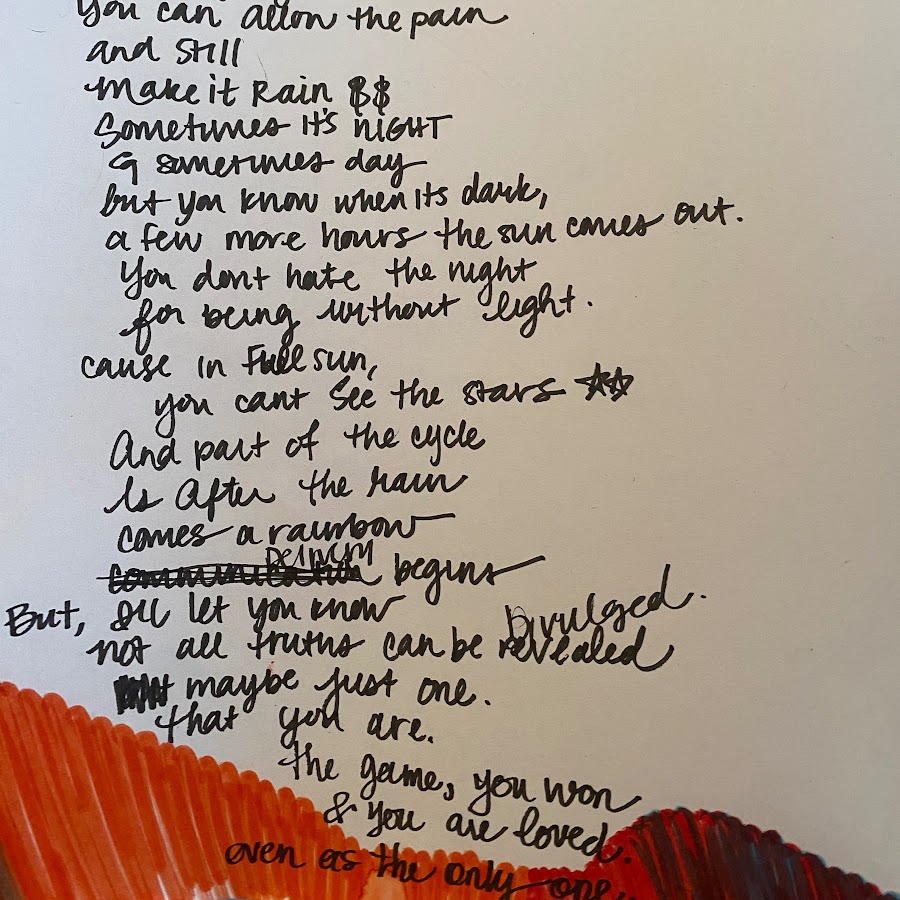 You can allow the pain
and still
make it Rain $$
Sometimes it's NIGHT
& sometimes day
but you know when its dark,
a few more hours the sun comes out.
You dont hate the night
for being without light.
cause in Full sun,
you cant See the stars ☆☆
And part of the cycle
Is After the rain
comes a rainbow
communication begins
But, I'll let you know
Divulged.
not all truths can be revealed
maybe just one.
that you are.
the game, you won
& you are loved.
even as the only one.